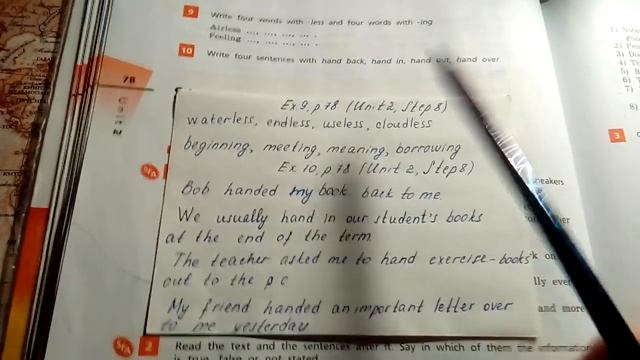 9 Write four words with -less and four words with -ing
Airless ..., ..., ..., ... .
Feeling ..., ..., ..., ... .
10 Write four sentences with hand back, hand in, hand out, hand over.
78
Unit 2
Ex 9, p 78 (Unit 2, Step 8)
waterless, endless, useless, cloudless
beginning, meeting, meaning, borrowing
Ex 10, p 78 (Unit 2, Step 8)
Bob handed my book back to me.
We usually hand in our student's books
at the end of the term
The teacher asked me to hand exercise-books
out to the
My friend handed an important letter over
to me yesterday
2 Read the text and the sentences after it. Say in which of them the information
is true, false or not stated.
1)
2)
3)
4)
5)
6)
7)
8)
3
and more